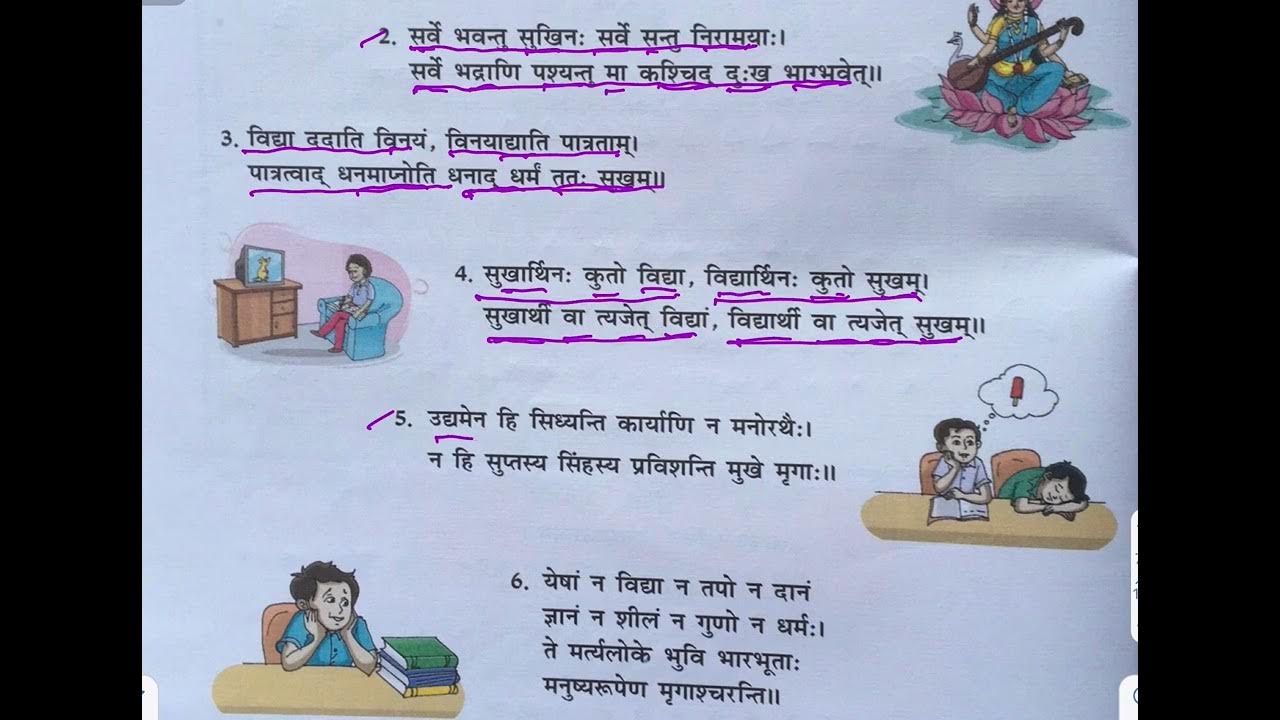 2. सर्वे भवन्तु सुखिनः सर्वे सन्तु निरामयाः।
सर्वे भद्राणि पश्यन्तु मा कश्चिद् दुःख भाग्भवेत्॥
3. विद्या ददाति विनयं, विनयाद्याति पात्रताम्।
पात्रत्वाद् धनमाप्नोति धनाद् धर्मं ततः सुखम्॥
4. सुखार्थिनः कुतो विद्या, विद्यार्थिनः कुतो सुखम्।
सुखार्थी वा त्यजेत् विद्यां, विद्यार्थी वा त्यजेत् सुखम्॥
5. उद्यमेन हि सिध्यन्ति कार्याणि न मनोरथैः।
न हि सुप्तस्य सिंहस्य प्रविशन्ति मुखे मृगाः॥
6. येषां न विद्या न तपो न दानं
ज्ञानं न शीलं न गुणो न धर्मः।
ते मर्त्यलोके भुवि भारभूताः
मनुष्यरूपेण मृगाश्चरन्ति॥